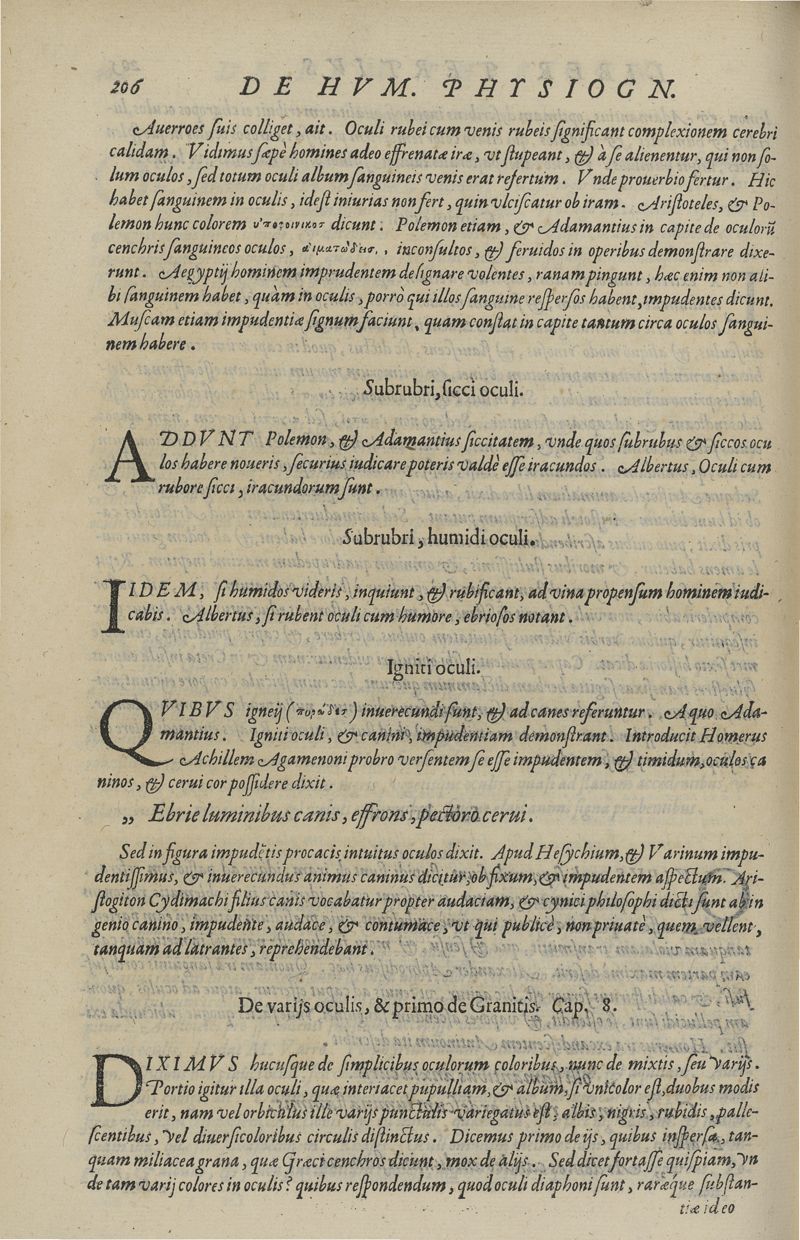 206 DE HVM. PHYSIOGN.
Auerroes suis colliget, ait. Oculi rubei cum venis rubeis significant complexionem cerebri
calidam. Vidimus sæpè homines adeo effrenatæ iræ, vt stupeant, & à se alienentur, qui non so-
lum oculos, sed totum oculi album sanguineis venis erat refertum. Vnde prouerbio fertur. Hic
habet sanguinem in oculis, idest iniurias non fert, quin vlciscatur ob iram. Aristoteles, & Po-
lemon hunc colorem dicunt. Polemon etiam, & Adamantius in capite de oculorũ
cenchris sanguineos oculos, αἱματώδεισ, inconsultos, & feruidos in operibus demonstrare dixe-
runt. Aegyptij hominem imprudentem designare volentes, ranam pingunt, hæc enim non ali-
bi sanguinem habet, quàm in oculis, porrò qui illos sanguine respersos habent, impudentes dicunt.
Muscam etiam impudentiæ signum faciunt, quam constat in capite tantum circa oculos sangui-
nem habere.
Subrubri, sicci oculi.
ADDVNT Polemon, & Adamantius siccitatem, vnde quos subrubus & siccos ocu
los habere noueris, securius iudicare poteris valdè esse iracundos. Albertus, Oculi cum
rubore sicci, iracundorum sunt.
Subrubri, humidi oculi.
IIDEM, si humidos videris, inquiunt, & rubificant, ad vina propensum hominem iudi-
cabis. Albertus, si rubent oculi cum humore, ebriosos notant.
Igniti oculi.
QVIBVS igneij ( ) inuerecundi sunt, & ad canes referuntur. A quo Ada-
mantius. Igniti oculi, & canini, impudentiam demonstrant. Introducit Homerus
Achillem Agamenoni probro versentem se esse impudentem, & timidum, oculos ca
ninos, & cerui cor possidere dixit.
„ Ebrie luminibus canis, effrons, pectorò cerui.
Sed in figura impudẽtis procacis intuitus oculos dixit. Apud Hesychium, & Varinum impu-
dentissimus, & inuerecundus animus caninus dicitur, ob fixum, & impudentem aspectum. Ari-
stogiton Cydimachi filius canis vocabatur propter audaciam, & cynici philosophi dicti sunt ab in
genio canino, impudente, audace, & contumace, vt qui publicè, non priuatè, quem vellent,
tanquam ad latrantes, reprehendebant.
De varijs oculis, & primo de Granitis. Cap. 8.
DIXIMVS hucusque de simplicibus oculorum coloribus, nunc de mixtis, seu varijs.
Portio igitur illa oculi, quæ interiacet pupulliam, & album, si vnicolor est, duobus modis
erit, nam vel orbiculus ille varijs punctulis variegatus est, albis, nigris, rubidis, palle-
scentibus, vel diuersicoloribus circulis distinctus. Dicemus primo de ijs, quibus inspersa, tan-
quam miliacea grana, quæ Græci cenchros dicunt, mox de alijs. Sed dicet fortasse quispiam, vn
de tam varij colores in oculis? quibus respondendum, quod oculi diaphoni sunt, raræque substan-
tiæ ideo